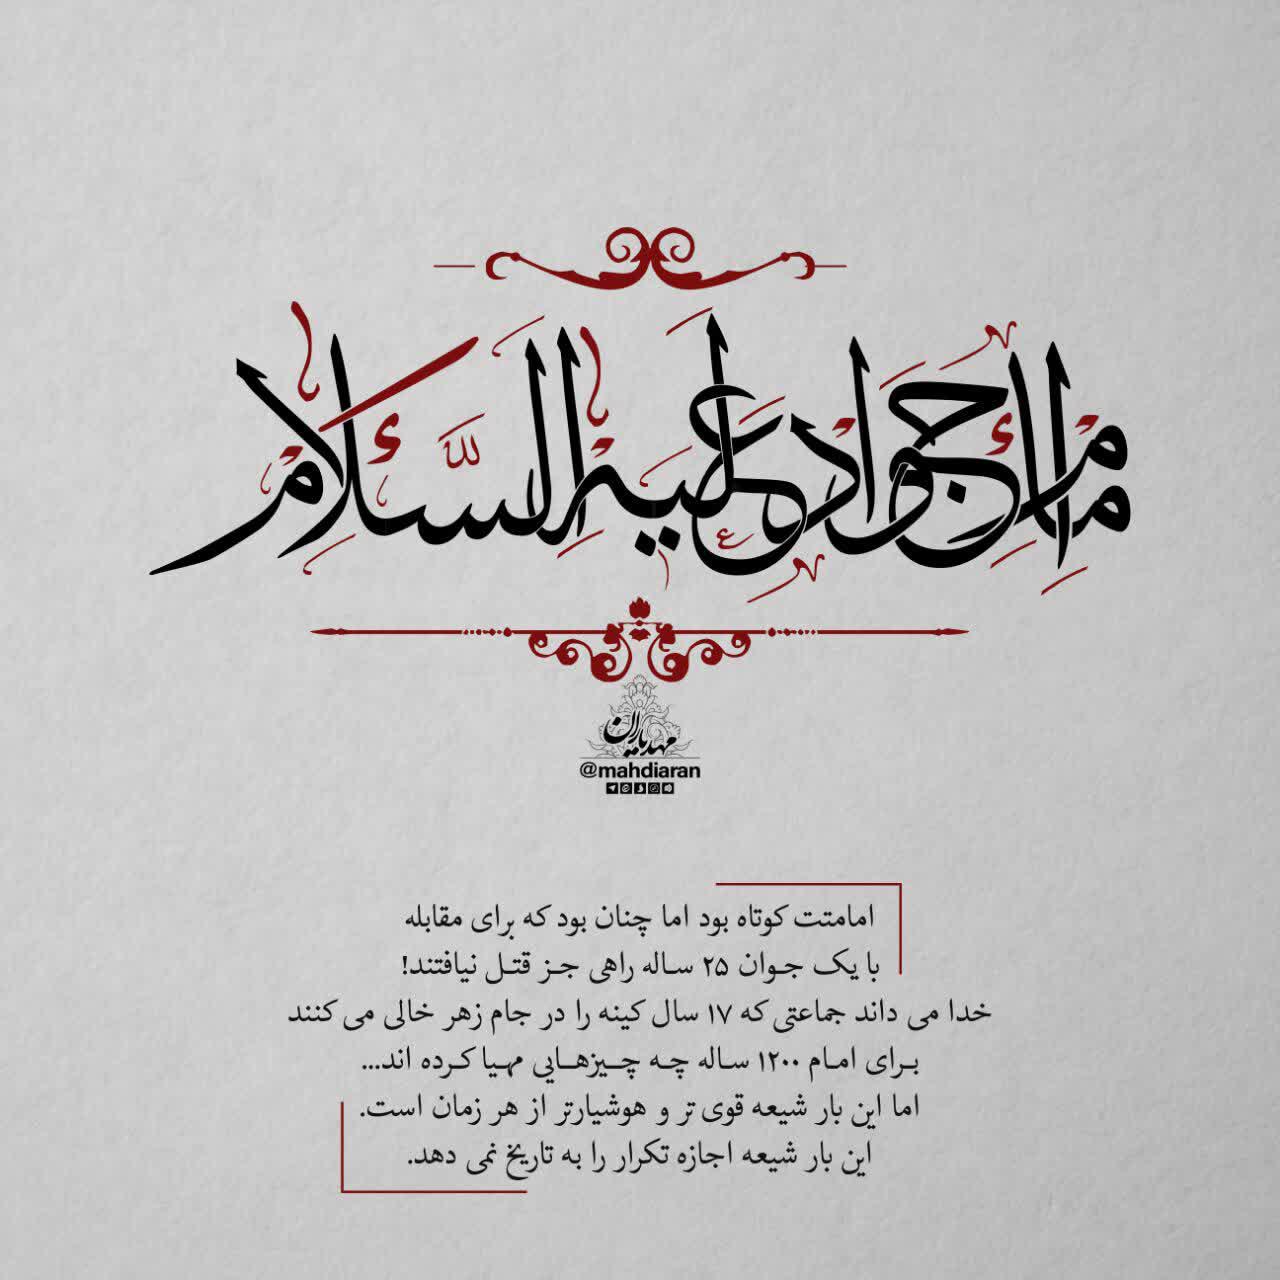 امام جواد علیه السلام
مهدیاران
@mahdiaran
امامتت کوتاه بود اما چنان بود که برای مقابله
با یک جوان ۲۵ ساله راهی جز قتل نیافتند!
خدا می داند جماعتی که ۱۷ سال کینه را در جام زهر خالی می کنند
برای امام ۱۲۰۰ ساله چه چیزهایی مهیا کرده اند...
اما این بار شیعه قوی تر و هوشیارتر از هر زمان است.
این بار شیعه اجازه تکرار را به تاریخ نمی دهد.